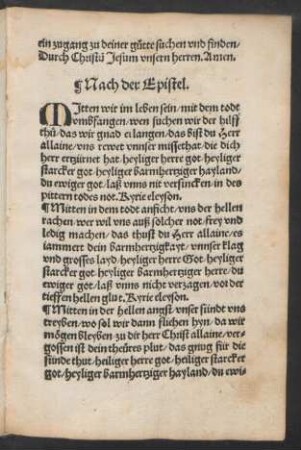 ein zugang zu deiner gütte suchen vnd finden-
Durch Christū Jesum vnsern herren. Amen.
¶ Nach der Epistel.
MItten wir im leben sein/mit dem todt
vmbfangen/wen suchen wir der hilff
thü/das wir gnad erlangen/das bist du Herr
allaine/vns rewet vnnser missethat/die dich
herr erzürnet hat/heyliger herre got/heyliger
starcker got/heyliger barmhertziger hayland/
du ewiger got/laß vnns nit versincken/in des
pittern todes not. Kyrie eleyson.
¶ Mitten in dem todt anficht/vns der hellen
rachen/wer wil vns auß sölcher not/frey vnd
ledig machen/das thust du Herr allaine/es
iammert dein barmhertzigkayt/vnnser klag
vnd grosses layd/heyliger herre Got/heyliger
starcker got/heyliger barmhertziger herre/du
ewiger got/laß vnns nicht verzagen/vor der
tieffen hellen glut. Kyrie eleyson.
¶ Mitten in der hellen angst/vnser sündt vns
treyben/wo sol wir dann fliehen hyn/da wir
mögen bleyben/zu dir herr Christ allaine/ver-
gossen ist dein theüres plut/das gnug für die
sünde thut/heiliger herre got/heiliger starcker
got/heyliger barmhertziger hayland/du ewi-